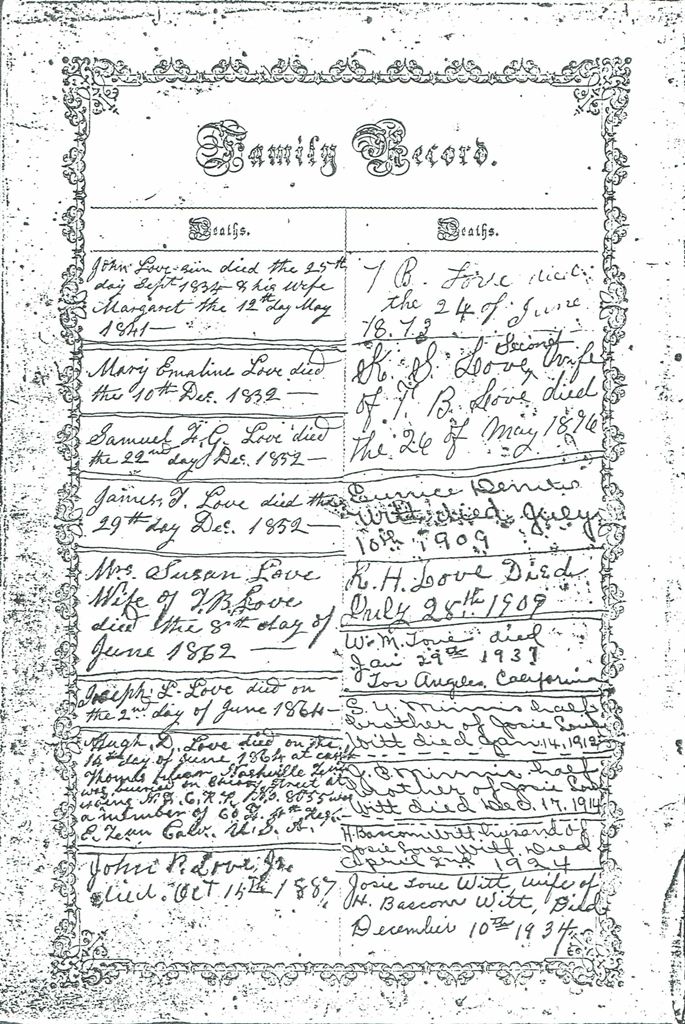 Family Record.
Deaths.
John Love sen died the 25th
day Sept 1834 & his wife
Margaret the 12th day May
1841—
Mary Emaline Love died
the 10th Dec. 1832 —
Samuel F. G. Love died
the 22nd day Dec. 1852 —
James T. Love died the
29th day Dec. 1852 —
Mrs. Susan Love
Wife of T. B. Love
died the 8th day of
June 1862 —
Joseph L. Love died on
the 2nd day of June 1864 —
Hugh D. Love died on the
14th day of June 1864 at camp
Thomas near Nashville Tenn
was buried on street at
8655 was
a member of Co. Regt
E. Tenn Calv. U. S. A.
John P. Love, Jr.
died. Oct 15th 1887
Deaths.
T B. Love died
the 24 of June
1873
K. S. Love, Second wife
of T. B. Love died
the 26 of May 1896
Eunice
Witt died July
10th 1909
R. H. Love Died
July 28th 1909
W. M. Love died
Jan 29th 1937
Los Angeles, California
S. Y. Minnis half
brother of Josie Love
Witt died Jan. 14. 1912
Minnis half
brother of Josie Love
Witt died Dec. 17. 1914
H. Bascom Witt husband of
Josie Love Witt, Died
April 2nd 1924
Josie Love Witt, wife of
H. Bascom Witt, Died
December 10th 1934